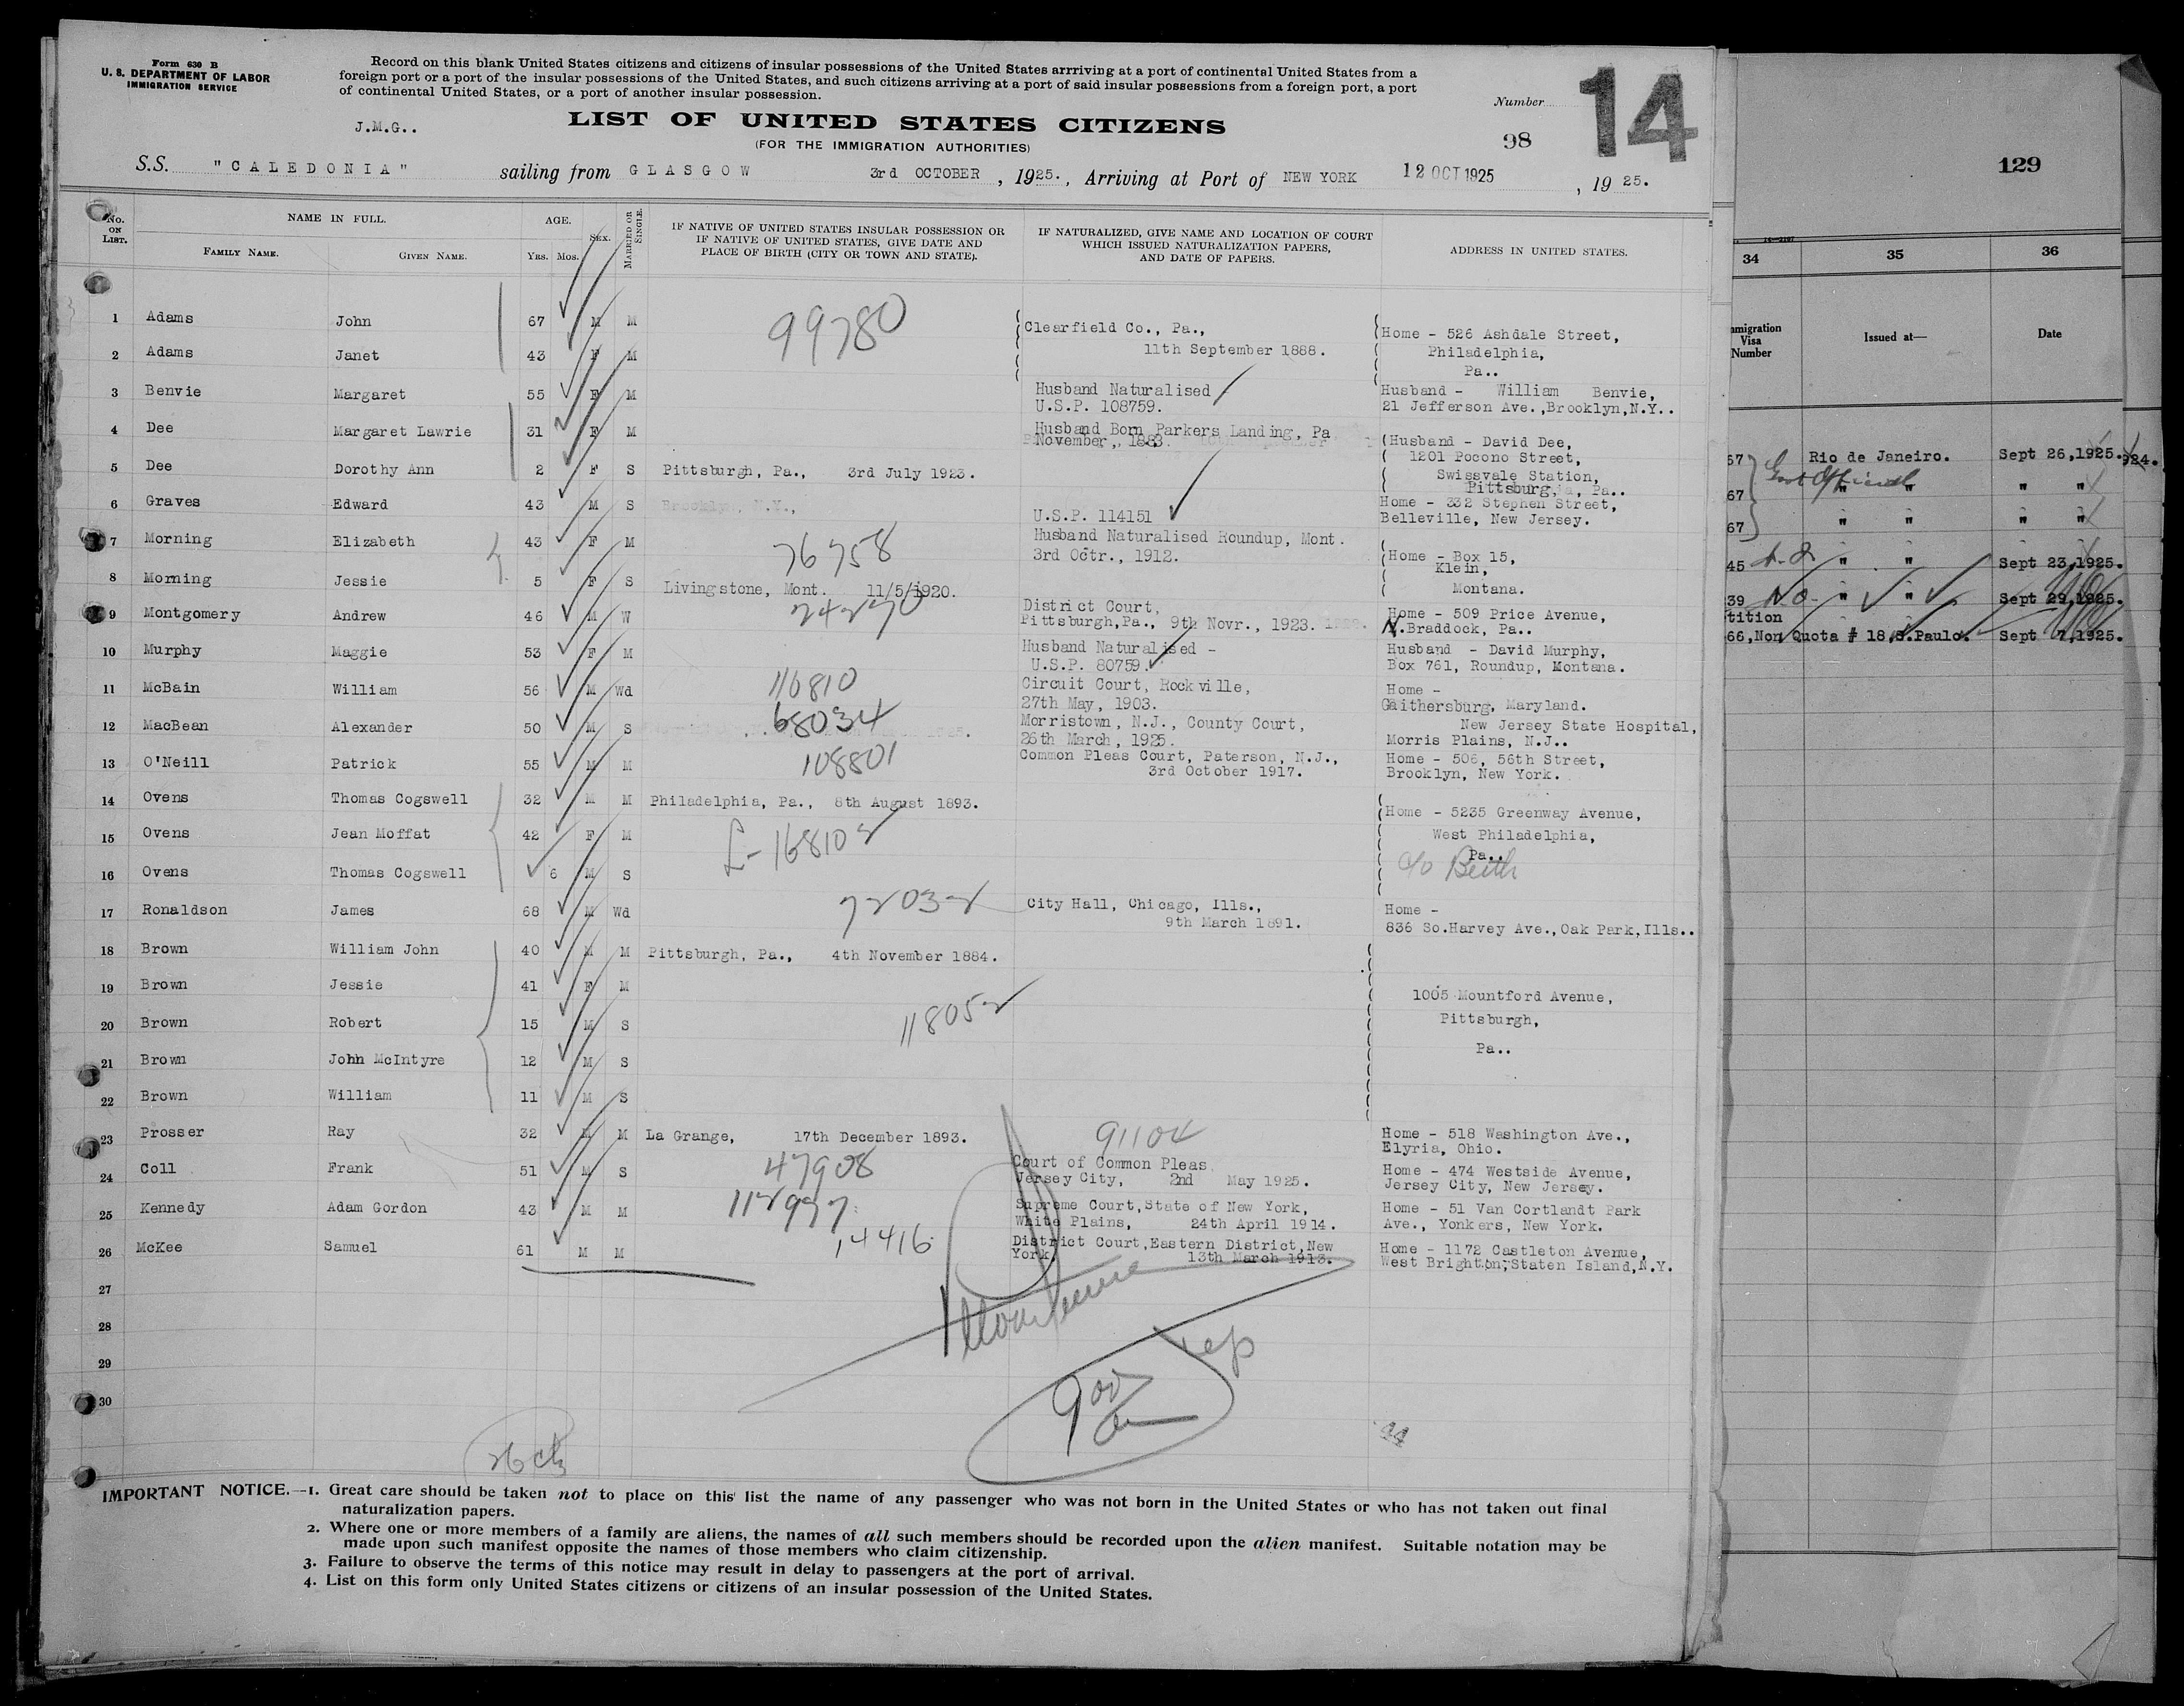 Form 630 B
U. S. DEPARTMENT OF LABOR
IMMIGRATION SERVICE
Record on this blank United States citizens and citizens of insular possessions of the United States arrriving at a port of continental United States from a
foreign port or a port of the insular possessions of the United States, and such citizens arriving at a port of said insular possessions from a foreign port, a port
of continental United States, or a port of another insular possession.
Number
14
J.M.G..
LIST OF UNITED STATES CITIZENS
(FOR THE IMMIGRATION AUTHORITIES)
98
S.S. "CALEDONIA" sailing from GLASGOW 3rd OCTOBER , 1925., Arriving at Port of NEW YORK 12 OCT 1925 , 1925.
No. ON LIST. NAME IN FULL. FAMILY NAME. GIVEN NAME. AGE. YRS. MOS. SEX. MARRIED OR SINGLE.
IF NATIVE OF UNITED STATES INSULAR POSSESSION OR
IF NATIVE OF UNITED STATES, GIVE DATE AND
PLACE OF BIRTH (CITY OR TOWN AND STATE).
IF NATURALIZED, GIVE NAME AND LOCATION OF COURT
WHICH ISSUED NATURALIZATION PAPERS,
AND DATE OF PAPERS.
ADDRESS IN UNITED STATES.
1 Adams John 67 M M 99780 Clearfield Co., Pa., Home - 526 Ashdale Street,
2 Adams Janet 43 F M 11th September 1888. Philadelphia,
Pa..
3 Benvie Margaret 55 F M Husband Naturalised Husband - William Benvie,
U.S.P. 108759. 21 Jefferson Ave.,Brooklyn,N.Y..
4 Dee Margaret Lawrie 31 F M Husband Born Parkers Landing, Pa
November,, 1883. Husband - David Dee,
5 Dee Dorothy Ann 2 F S Pittsburgh, Pa., 3rd July 1923. 1201 Pocono Street,
Swissvale Station,
Pittsburg, Pa..
6 Graves Edward 43 M S Brooklyn, N.Y., U.S.P. 114151 Home - 332 Stephen Street,
Belleville, New Jersey.
7 Morning Elizabeth 43 F M 76758 Husband Naturalised Roundup, Mont.
3rd Octr., 1912. Home - Box 15,
Klein,
8 Morning Jessie 5 F S Livingstone, Mont. 11/5/1920. Montana.
9 Montgomery Andrew 46 M W 24270 District Court, Home - 509 Price Avenue,
Pittsburgh,Pa., 9th Novr., 1923. N.Braddock, Pa..
10 Murphy Maggie 53 F M Husband Naturalised - Husband - David Murphy,
U.S.P. 80759. Box 761, Roundup, Montana.
11 McBain William 56 M Wd 116810 Circuit Court, Rockville, Home -
27th May, 1903. Gaithersburg, Maryland.
12 MacBean Alexander 50 M S 68034 Morristown, N.J., County Court, New Jersey State Hospital,
26th March, 1925. Morris Plains, N.J..
13 O'Neill Patrick 55 M M 108801 Common Pleas Court, Paterson, N.J., Home - 506, 56th Street,
3rd October 1917. Brooklyn, New York.
14 Ovens Thomas Cogswell 32 M M Philadelphia, Pa., 8th August 1893. Home - 5235 Greenway Avenue,
15 Ovens Jean Moffat 42 F M £-168102 West Philadelphia,
Pa..
16 Ovens Thomas Cogswell 6 M S c/o Beith
17 Ronaldson James 68 M Wd 72032 City Hall, Chicago, Ills., Home -
9th March 1891. 836 So.Harvey Ave.,Oak Park,Ills..
18 Brown William John 40 M M Pittsburgh, Pa., 4th November 1884.
19 Brown Jessie 41 F M 1005 Mountford Avenue,
20 Brown Robert 15 M S 118052 Pittsburgh,
21 Brown John McIntyre 12 M S Pa..
22 Brown William 11 M S
23 Prosser Ray 32 M M La Grange, 17th December 1893. 91104 Home - 518 Washington Ave.,
Elyria, Ohio.
24 Coll Frank 51 M S 47908 Court of Common Pleas Home - 474 Westside Avenue,
Jersey City, 2nd May 1925. Jersey City, New Jersey.
25 Kennedy Adam Gordon 43 M M 112997 Supreme Court,State of New York, Home - 51 Van Cortlandt Park
White Plains, 24th April 1914. Ave., Yonkers, New York.
26 McKee Samuel 61 M M 14416 District Court,Eastern District,New Home - 1172 Castleton Avenue,
York, 13th March 1913. West Brighton,Staten Island,N.Y.
27
28
29
30
IMPORTANT NOTICE.—1. Great care should be taken not to place on this list the name of any passenger who was not born in the United States or who has not taken out final
naturalization papers.
2. Where one or more members of a family are aliens, the names of all such members should be recorded upon the alien manifest. Suitable notation may be
made upon such manifest opposite the names of those members who claim citizenship.
3. Failure to observe the terms of this notice may result in delay to passengers at the port of arrival.
4. List on this form only United States citizens or citizens of an insular possession of the United States.
129
34 35 36
Visa
Number
Issued at—
Date
67 Rio de Janeiro. Sept 26,1925. 924.
67 " " " "
67 " " " "
45 " " Sept 23,1925.
39 " " Sept 29,1925.
66,Non Quota # 18,S.Paulo. Sept 7,1925.